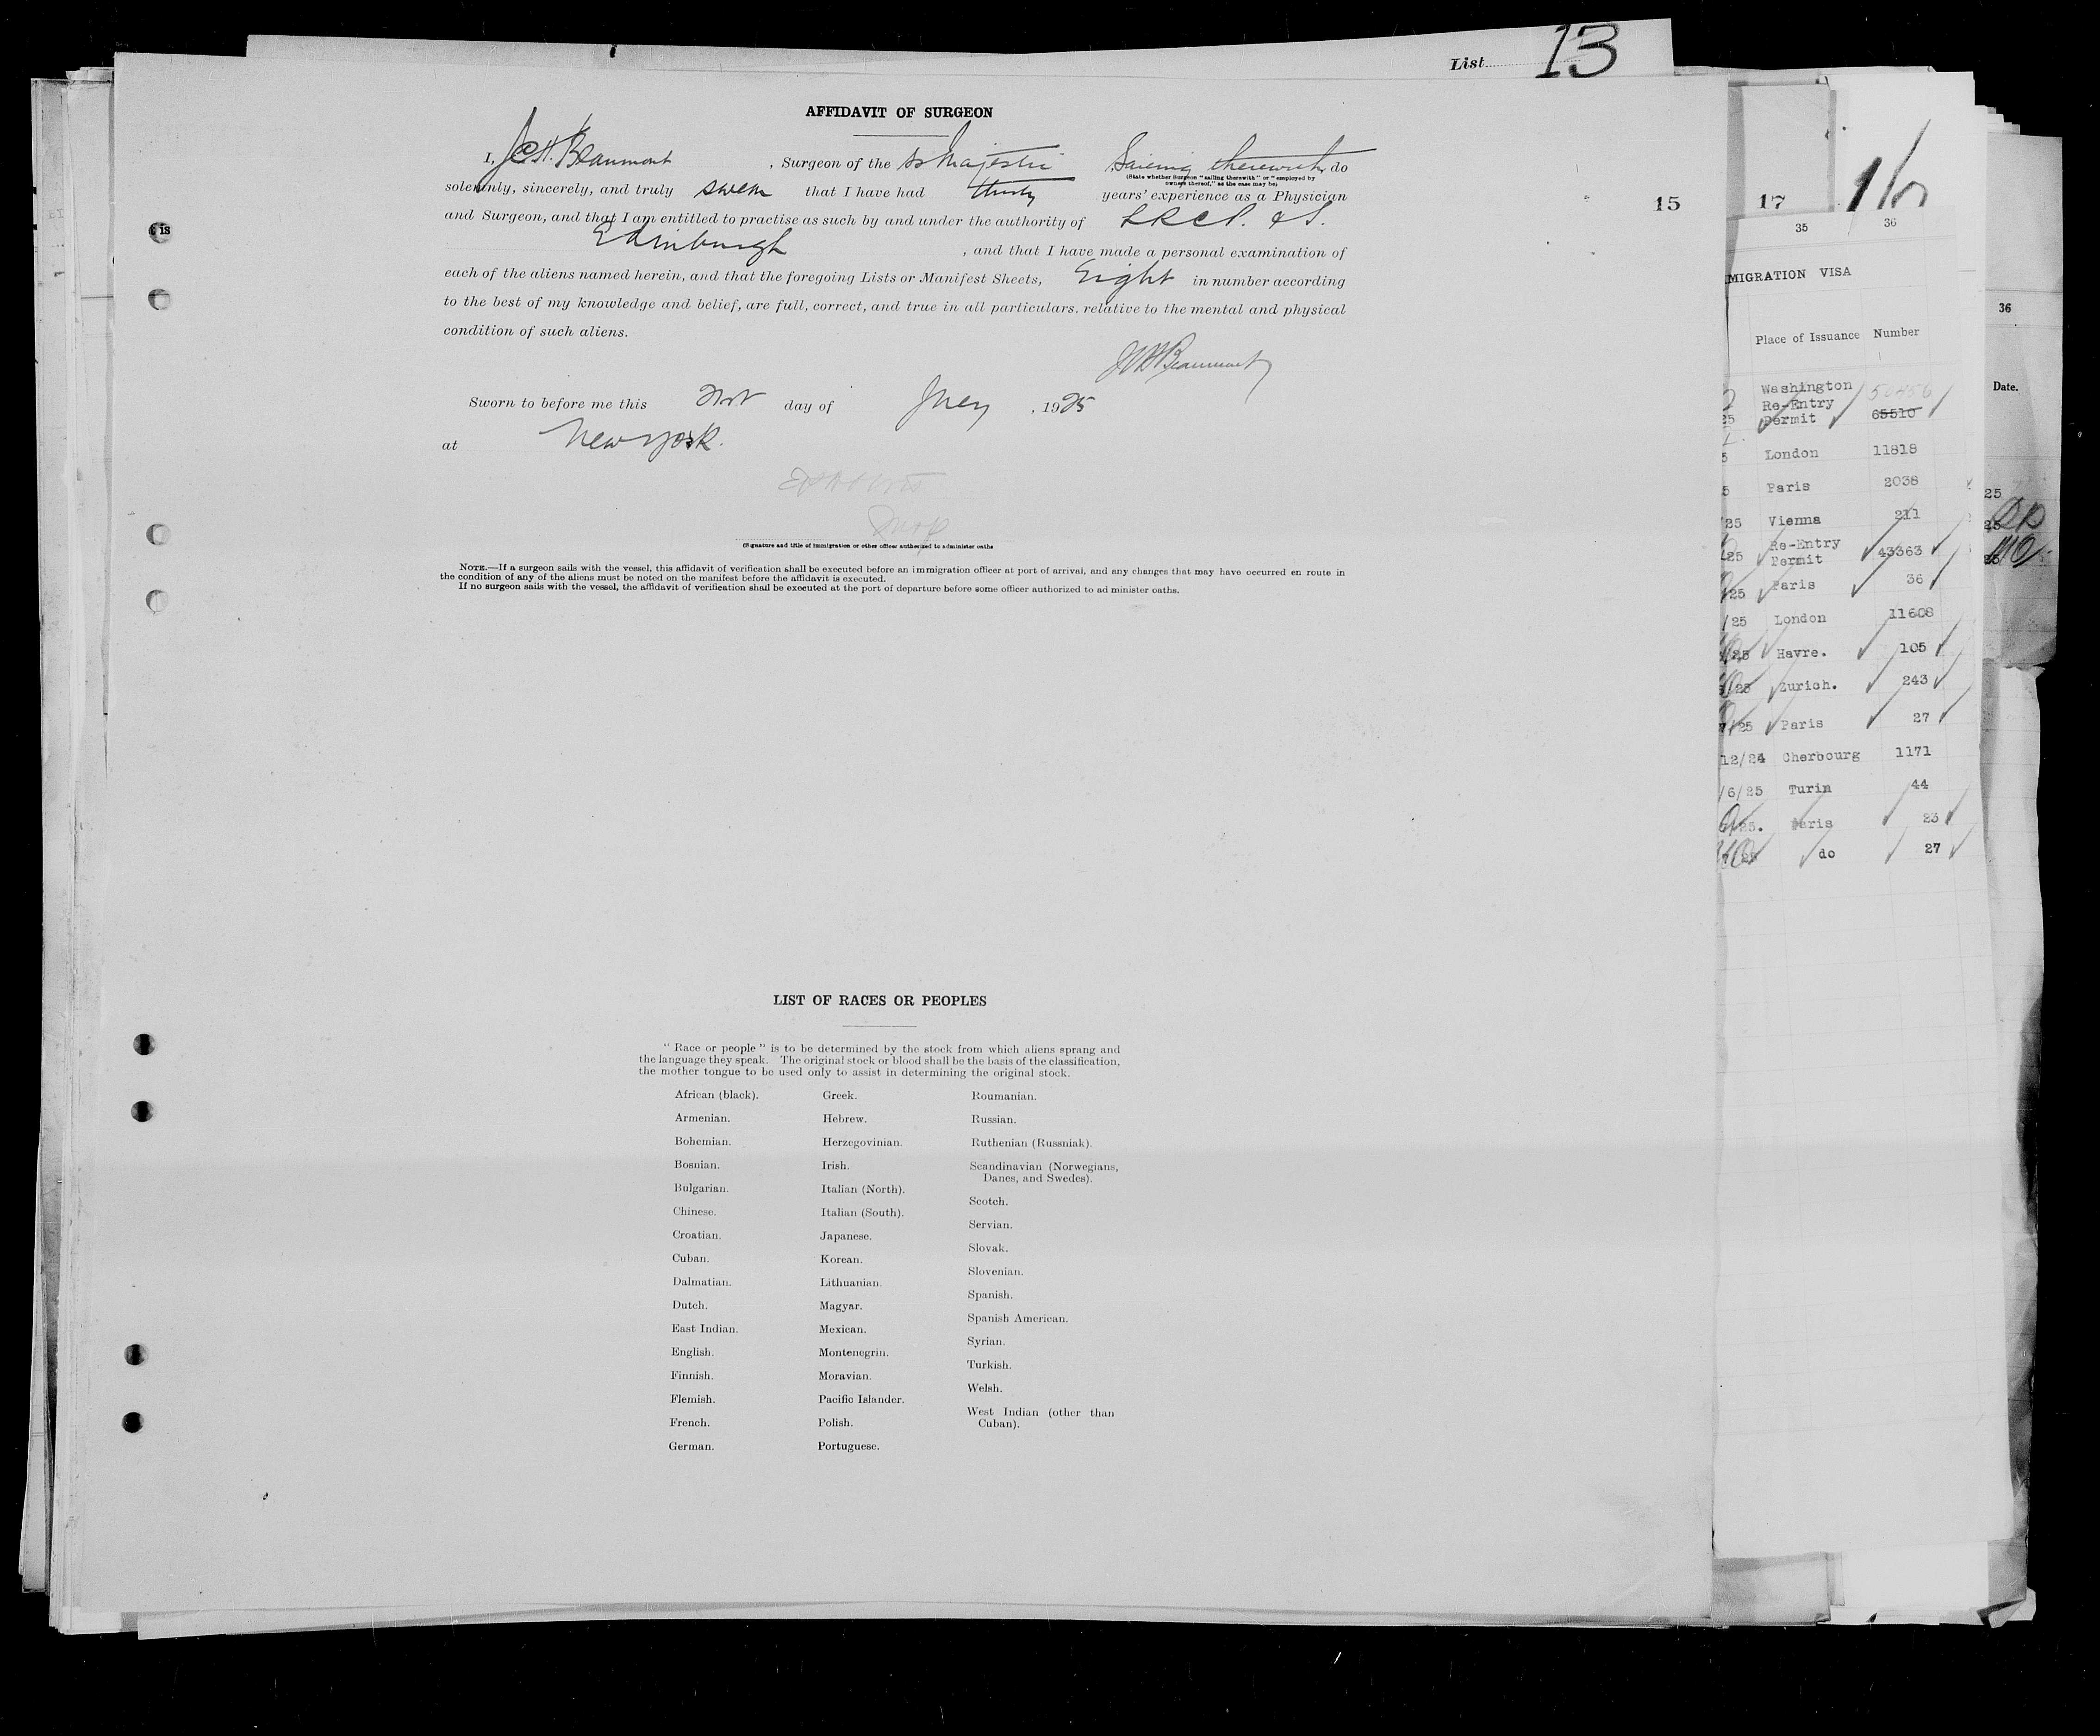 List 13
AFFIDAVIT OF SURGEON
I, J.C.H. Beaumont, Surgeon of the SS Majestic Sailing therewith, do
(State whether Surgeon "sailing therewith" or "employed by
owners thereof," as the case may be)
solemnly, sincerely, and truly swear that I have had thirty years' experience as a Physician
and Surgeon, and that I am entitled to practise as such by and under the authority of LRCP. & S.
Edinburgh, and that I have made a personal examination of
each of the aliens named herein, and that the foregoing Lists or Manifest Sheets, Eight in number according
to the best of my knowledge and belief, are full, correct, and true in all particulars. relative to the mental and physical
condition of such aliens.
JCH Beaumont
Sworn to before me this day of July, 1925
at New York.
(Signature and title of immigration or other officer authorized to administer oaths
NOTE.—If a surgeon sails with the vessel, this affidavit of verification shall be executed before an immigration officer at port of arrival, and any changes that may have occurred en route in
the condition of any of the aliens must be noted on the manifest before the affidavit is executed.
If no surgeon sails with the vessel, the affidavit of verification shall be executed at the port of departure before some officer authorized to administer oaths.
LIST OF RACES OR PEOPLES
"Race or people" is to be determined by the stock from which aliens sprang and
the language they speak. The original stock or blood shall be the basis of the classification,
the mother tongue to be used only to assist in determining the original stock.
African (black).
Armenian.
Bohemian.
Bosnian.
Bulgarian.
Chinese.
Croatian.
Cuban.
Dalmatian.
Dutch.
East Indian.
English.
Finnish.
Flemish.
French.
German.
Greek.
Hebrew.
Herzegovinian.
Irish.
Italian (North).
Italian (South).
Japanese.
Korean.
Lithuanian.
Magyar.
Mexican.
Montenegrin.
Moravian.
Pacific Islander.
Polish.
Portuguese.
Roumanian.
Russian.
Ruthenian (Russniak).
Scandinavian (Norwegians,
Danes, and Swedes).
Scotch.
Servian.
Slovak.
Slovenian.
Spanish.
Spanish American.
Syrian.
Turkish.
Welsh.
West Indian (other than
Cuban).
15
17
35 36
MIGRATION VISA
Place of Issuance Number
Washington 50456
Re-Entry
25 Permit 65510
5 London 11818
5 Paris 2038
25 Vienna 211
Re-Entry
25 Permit 43363
25 Paris 36
/25 London 11608
/25 Havre. 105
/25 Zurich. 243
/25 Paris 27
12/24 Cherbourg 1171
/6/25 Turin 44
25. Paris 23
25 do 27
36
Date.
25
25
25